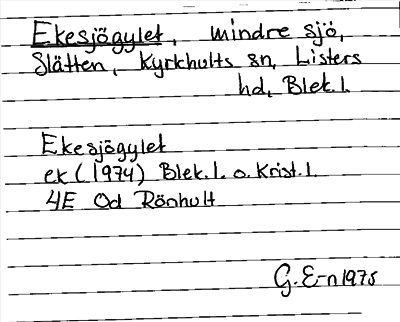 Ekesjögylet, mindre sjö,
Slätten, Kyrkhults sn, Listers
hd, Blek. l.
Ekesjögylet
ek (1974) Blek. l. o. Krist. l.
4E Od Rönhult
G. E-n 1975